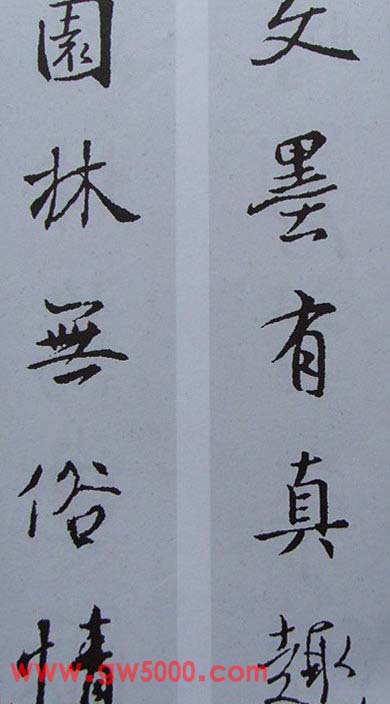 文墨有真趣
園林無俗情
www.gw5000.com